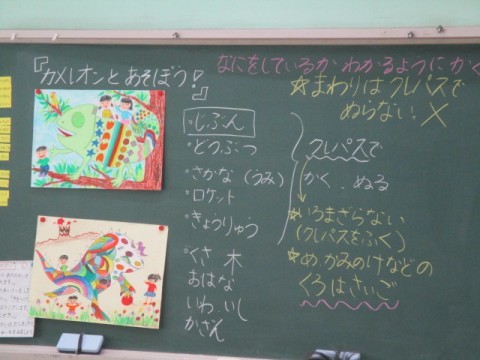 『カメレオンとあそぼう!』
なにをしているか わかるように かく
☆まわりはクレパスで
ぬらない ×
・じぶん
・どうぶつ
・さかな(うみ)
・ロケット
・きょうりゅう
・くさ 木
おはな
いわ、いし
かざん
クレパスで
かく、ぬる
☆いろまざらない
(クレパスをふく)
☆め かみのけなどの
くろはさいご